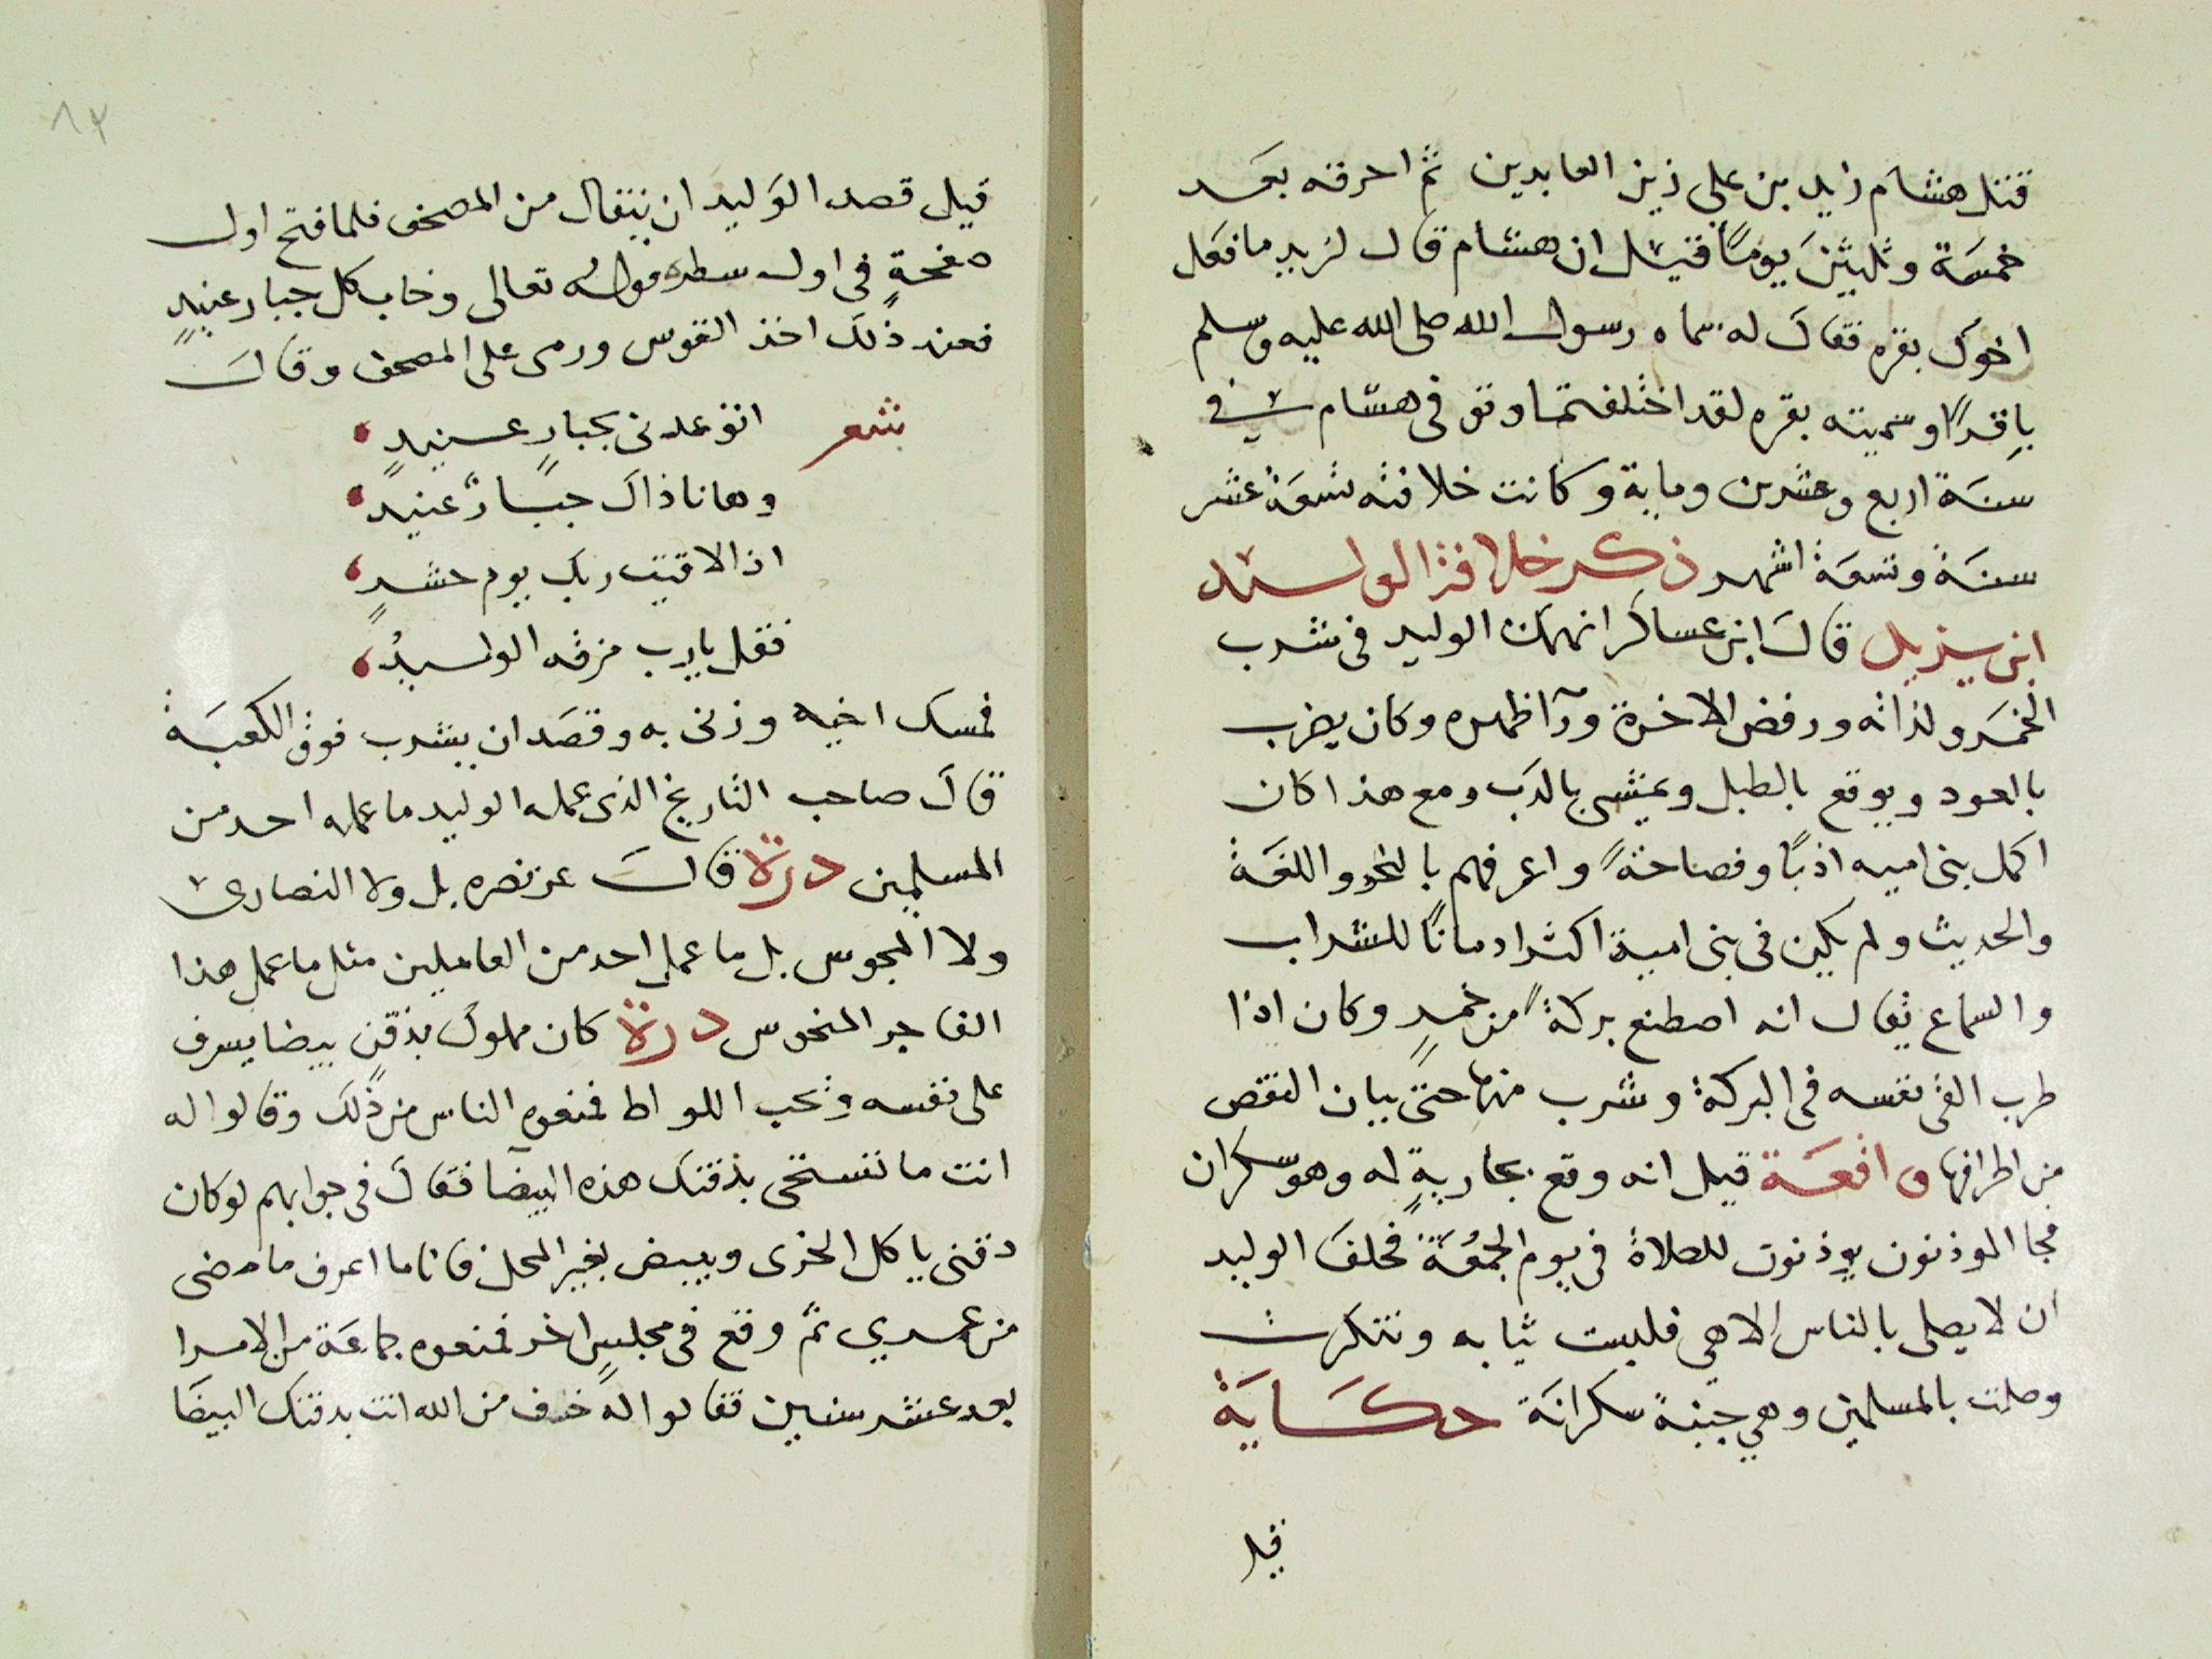 قتل هشام زيد بن على زين العابدين ثم احرقه بعد
خمسة وثلثين يوماً فقيل ان هشام قال لزيد ما فعل
اخوك بقره فقال له سماه رسول الله صلى الله عليه وسلم
باقراً وسميته بقره لقد اختلفتما وتوفى هشام في
سنة اربع وعشرين وماية وكانت خلافته تسعة عشر
سنة وتسعة اشهر ذكر خلافة الوليد
ابن يزيد قال ابن عساكر انهمك الوليد فى شرب
الخمر ولذاته ورفض الاخرة ورآ ظهره وكان يضرب
بالعود ويوقع بالطبل ويمشى بالدب ومع هذا كان
اكمل بنى اميه ادباً وفصاحةً واعرفهم بالنحو واللغة
والحديث ولم يكن فى بنى امية اكثر ادماناً للشراب
والسماع يقال انه اصطنع بركةً من خمرٍ وكان اذا
طرب القى نفسه فى البركة وشرب منها حتى يبان النقص
من اطرافها واقعة قيل انه وقع بجاريةٍ له وهو سكران
فجا الموذنون يوذنون للصلاة فى يوم الجمعة فحلف الوليد
ان لا يصلى بالناس الا هي فلبست ثيابه وتنكرت
وصلت بالمسلمين وهي جنبة سكرانة حكاية
قيل
٨٣
قيل قصد الوليد ان يتفال من المصحف فلما فتح اول
صفحةٍ فى اول سطره قوله تعالى وخاب كل جبار عنيدٍ
فعند ذلك اخذ القوس ورمى على المصحف وقال
شعر اتوعدنى بجبارٍ عنيدٍ
وها انا ذاك جبارٌ عنيد
اذا لاقيت ربك يوم حشرٍ
فقل يا رب مزقه الوليدُ
فمسك اخيه وزنى به وقصد ان يشرب فوق الكعبة
قال صاحب التاريخ الذى عمله الوليد ما عمله احد من
المسلمين درة قال عز نصره بل ولا النصارى
ولا المجوس بل ما عمل احد من العاملين مثل ما عمل هذا
الفاجر المنحوس درة كان مملوك بذقنٍ بيضا يسرف
على نفسه ويحب اللواط فمنعوه الناس من ذلك وقالوا له
انت ما تستحى بذقنك هذه البيضا فقال فى جوابهم لو كان
دقنى ياكل الخرى ويبيض بغير المحل فانا ما اعرف ما مضى
من عمري ثم وقع فى مجلسٍ اخر فمنعوه جماعة من الامرا
بعد عشر سنين فقالوا له خف من الله انت بدقنك البيضا